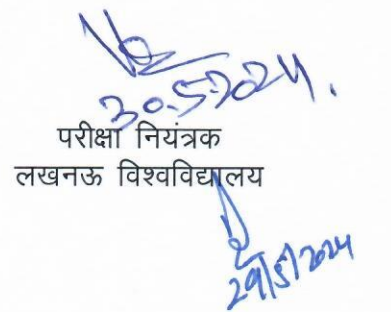 30.5.2024.
परीक्षा नियंत्रक
लखनऊ विश्वविद्यालय
29/5/2024